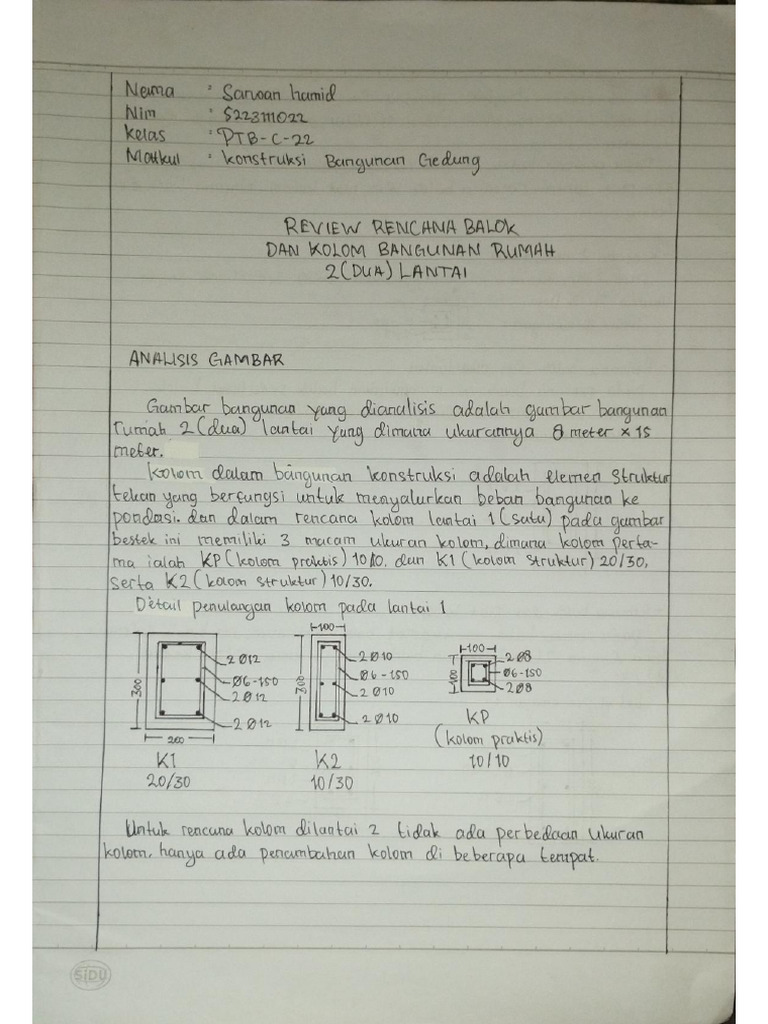 Nama : Sarwan hamid
Nim : 5223111022
Kelas : PTB-C-22
Matkul : Konstruksi Bangunan Gedung
REVIEW RENCANA BALOK
DAN KOLOM BANGUNAN RUMAH
2 (DUA) LANTAI
ANALISIS GAMBAR
Gambar bangunan yang dianalisis adalah gambar bangunan
rumah 2 (dua) lantai yang dimana ukurannya 8 meter x 15
meter.
Kolom dalam bangunan konstruksi adalah elemen struktur
tekan yang berfungsi untuk menyalurkan beban bangunan ke
pondasi. dan dalam rencana kolom lantai 1 (satu) pada gambar
bestek ini memiliki 3 macam ukuran kolom, dimana kolom perta-
ma ialah KP (kolom praktis) 10/10. dan K1 (kolom struktur) 20/30,
serta K2 (kolom struktur) 10/30.
Detail penulangan kolom pada lantai 1
300
2 Ø12
Ø6-150
2 Ø12
2 Ø12
200
K1
20/30
100
300
2 Ø10
Ø6-150
2 Ø10
2 Ø10
K2
10/30
100
100
2 Ø8
Ø6-150
2 Ø8
KP
(kolom praktis)
10/10
Untuk rencana kolom dilantai 2 tidak ada perbedaan ukuran
kolom, hanya ada penambahan kolom di beberapa tempat.
SIDU